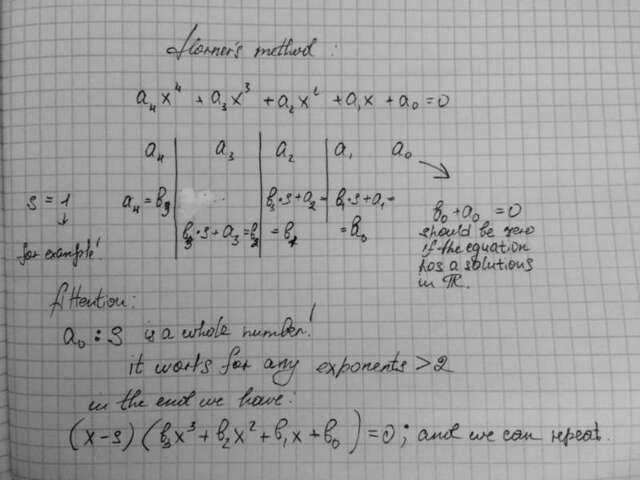 Horner's method:
a₄x⁴ + a₃x³ + a₂x² + a₁x + a₀ = 0
a₄ a₃ a₂ a₁ a₀
s = 1 a₄ = b₃ b₃·s+a₂= b₁·s+a₁=
b₃·s+a₃=b₂ =b₁ =b₀
for example!
b₀+a₀ = 0
should be zero
if the equation
has a solutions
in ℝ.
Attention:
a₀ : s is a whole number!
it works for any exponents >2
in the end we have:
(x-s)(b₃x³+b₂x²+b₁x+b₀)=0; and we can repeat.